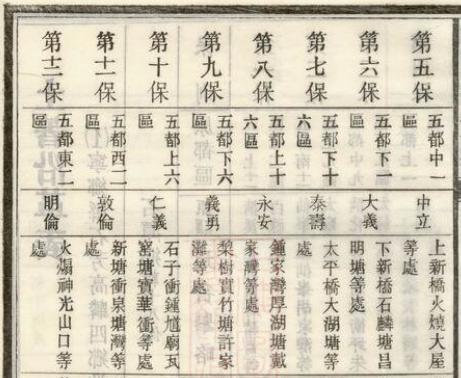 第五保
五都中一
區
中立
上新橋火燒大屋
等處
第六保
五都下一
區
大義
下新橋石麟塘昌
明塘等處
第七保
五都下十
六區
泰壽
太平橋大湖塘等
處
第八保
五都上十
六區
永安
鍾家灣厚湖塘戴
家灣等處
第九保
五都下六
區
義勇
梨樹寶竹塘許家
灘等處
第十保
五都上六
區
仁義
石子衝鍾馗廟瓦
窰塘寶華衝等處
第十一保
五都西二
區
敦倫
新塘衝泉塘灣等
處
第十二保
五都東二
區
明倫
火煽神光山口等
處